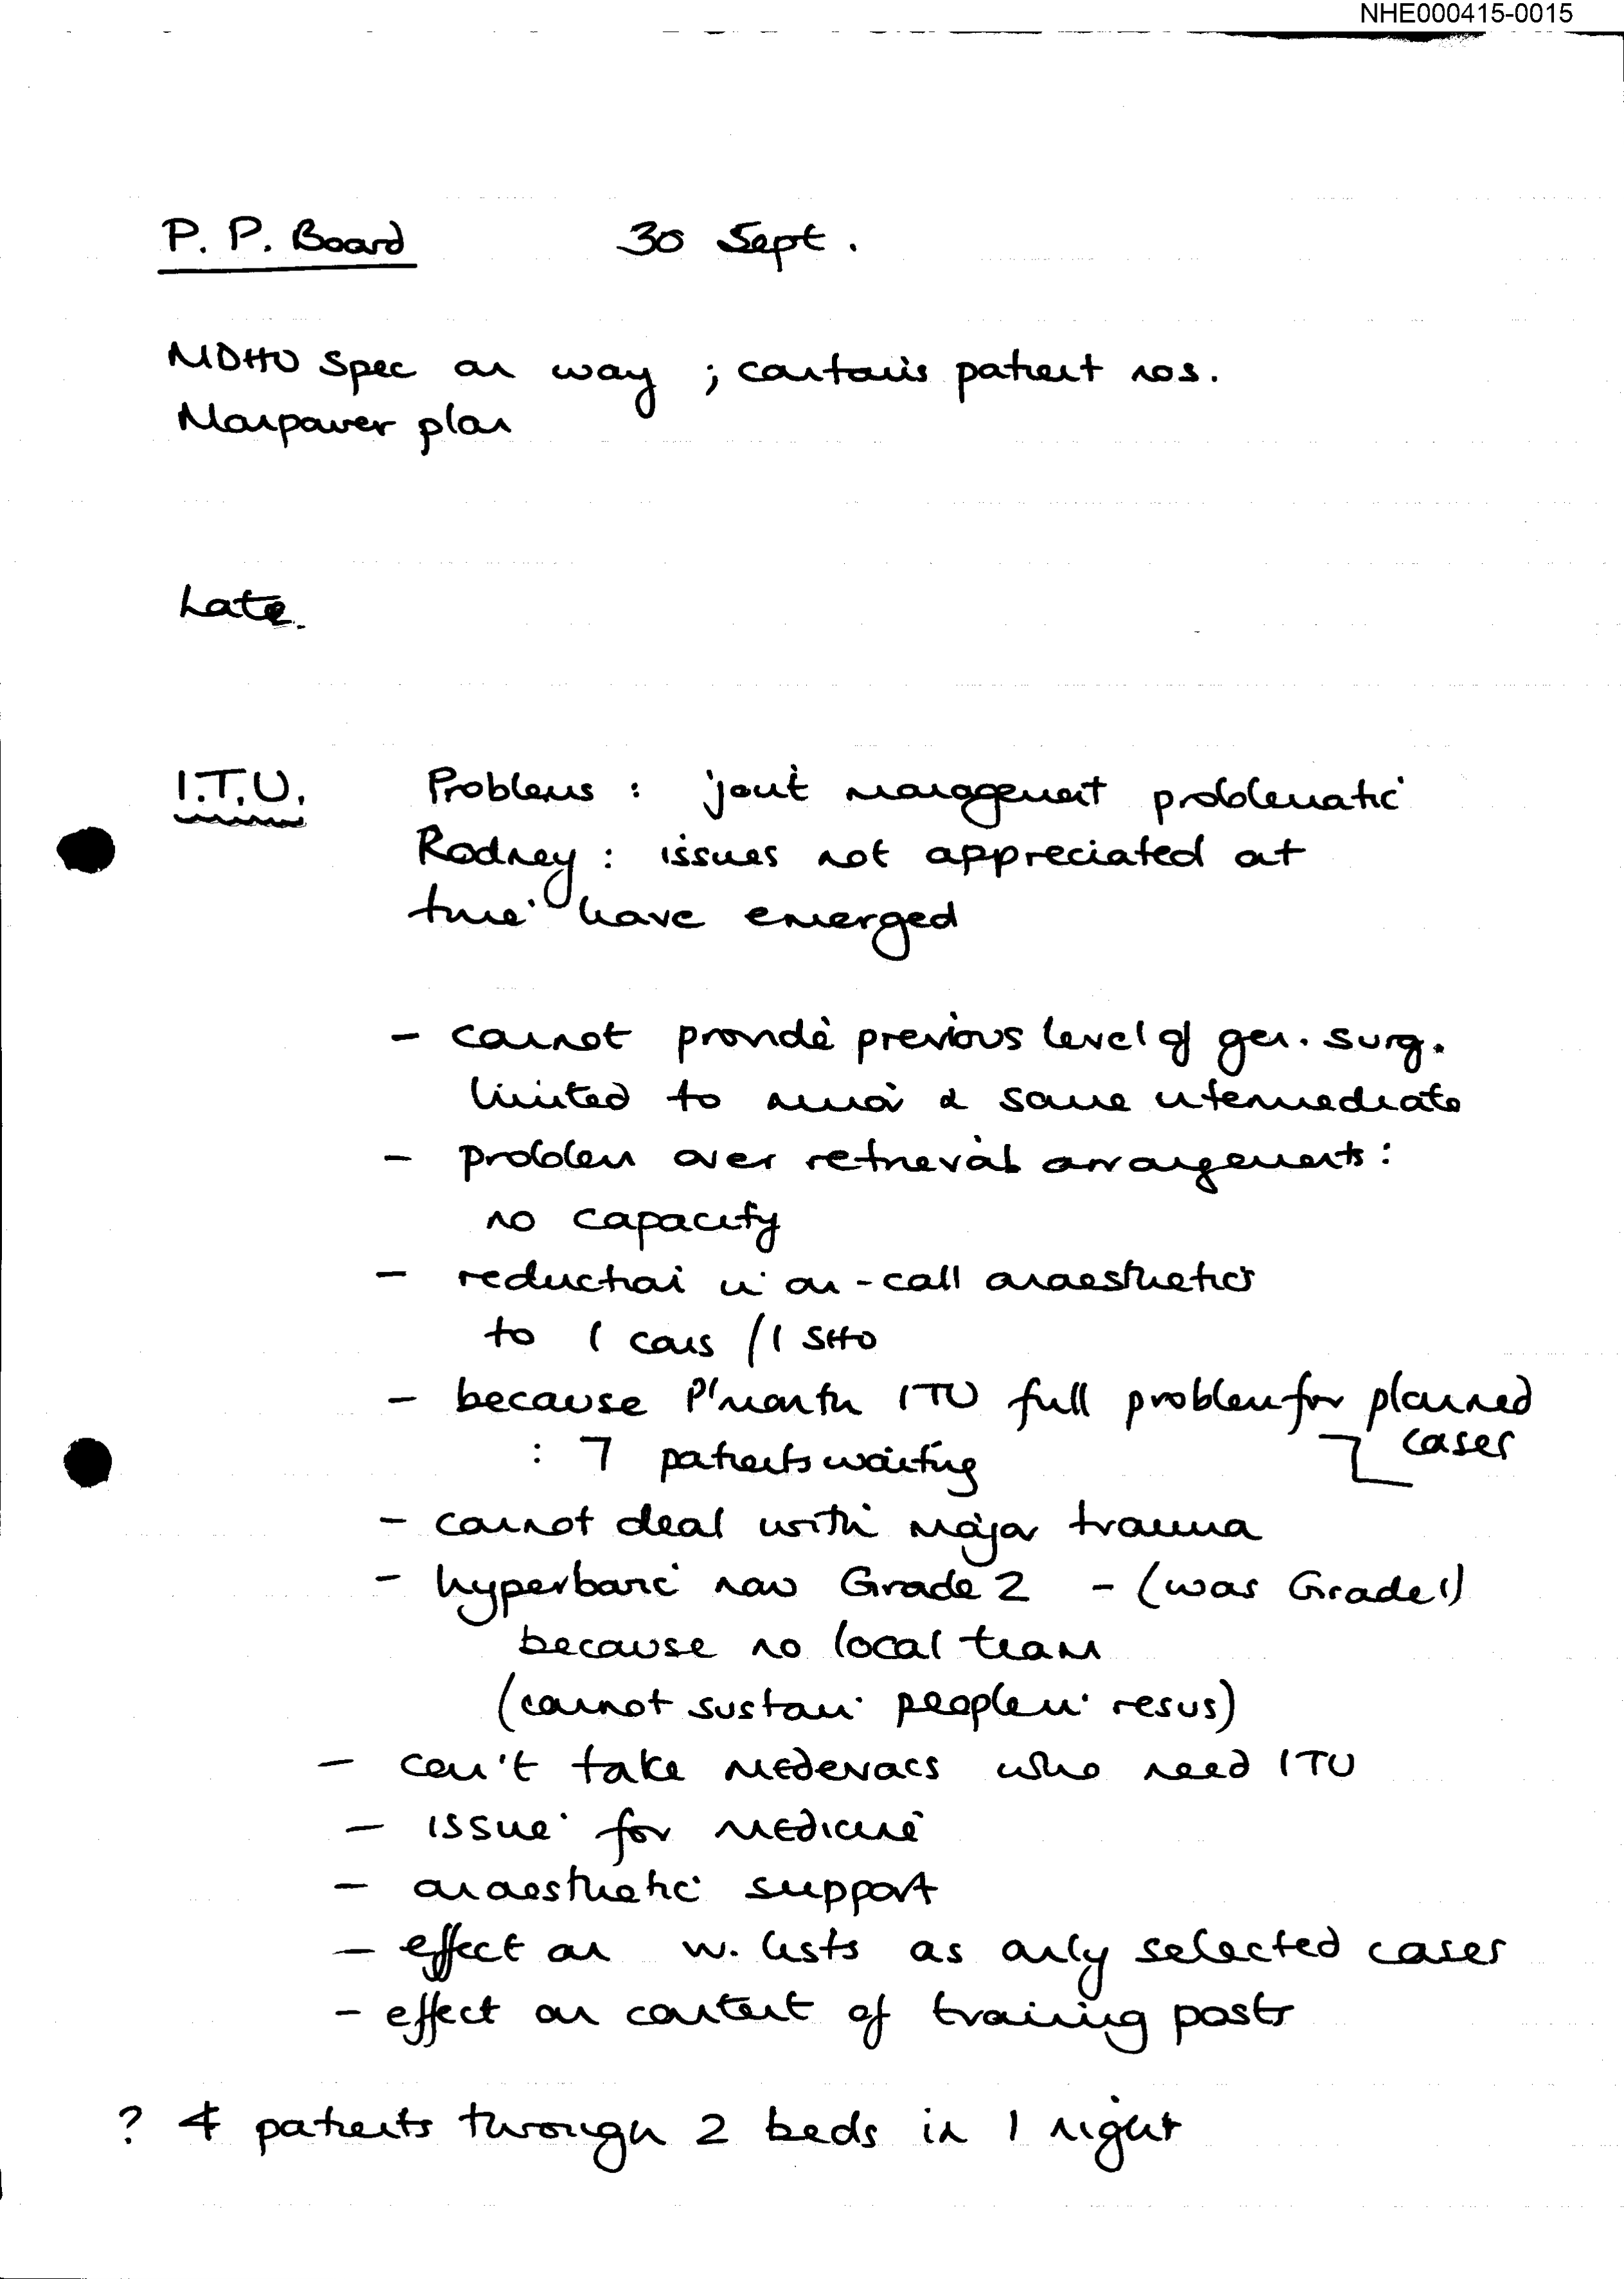 NHE000415-0015
P. P. Board 30 Sept.
MDHU Spec on way ; contains patient nos.
Manpower plan
Late.
I.T.U. Problems : joint management problematic
Rodney : issues not appreciated at
time have emerged
- cannot provide previous level of gen. surg.
limited to minor & some intermediate
- problem over retrieval arrangements :
no capacity
- reduction in on-call anaesthetics
to 1 cons / 1 SHO
- because P'mouth ITU full problem for planned
cases
: 7 patients waiting
- cannot deal with major trauma
- hyperbaric now Grade 2 - (was Grade 1)
because no local team
(cannot sustain people in resus)
- can't take medevacs who need ITU
- issue for medicine
- anaesthetic support
- effect on w. lists as only selected cases
- effect on content of training posts
? 4 patients through 2 beds in 1 night